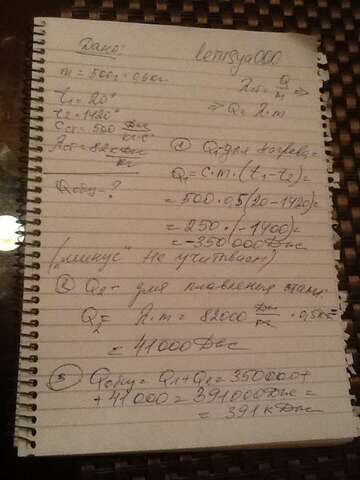 Дано:
lenusya000
m = 500г = 0,5кг
λст = Q/m ⇒
⇒ Q = λ·m
t1 = 20°
t2 = 1420°
Cст = 500 Дж/кг·°C
λст = 82 кДж/кг
Qобщ = ?
① Q1 - для нагрев. =
Q1 = c·m·(t1 - t2) =
= 500·0,5(20 - 1420) =
= 250·(-1400) =
= -350 000 Дж
("минус" не учитываем)
② Q2 - для плавления стали
Q2 = λ·m = 82000 Дж/кг · 0,5кг =
= 41000 Дж
③ Qобщ = Q1 + Q2 = 350000 +
+ 41000 = 391000 Дж =
= 391 кДж